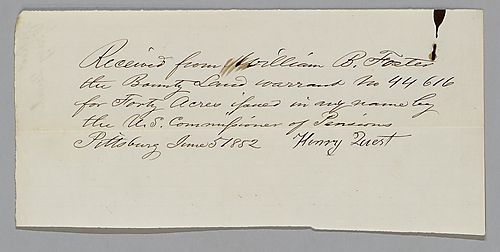 Received from William B. Foster
the Bounty Land warrant No 44 616
for Forty Acres issued in my name by
the U.S. Commissioner of Pensions
Pittsburg June 5 1852 Henry Quest